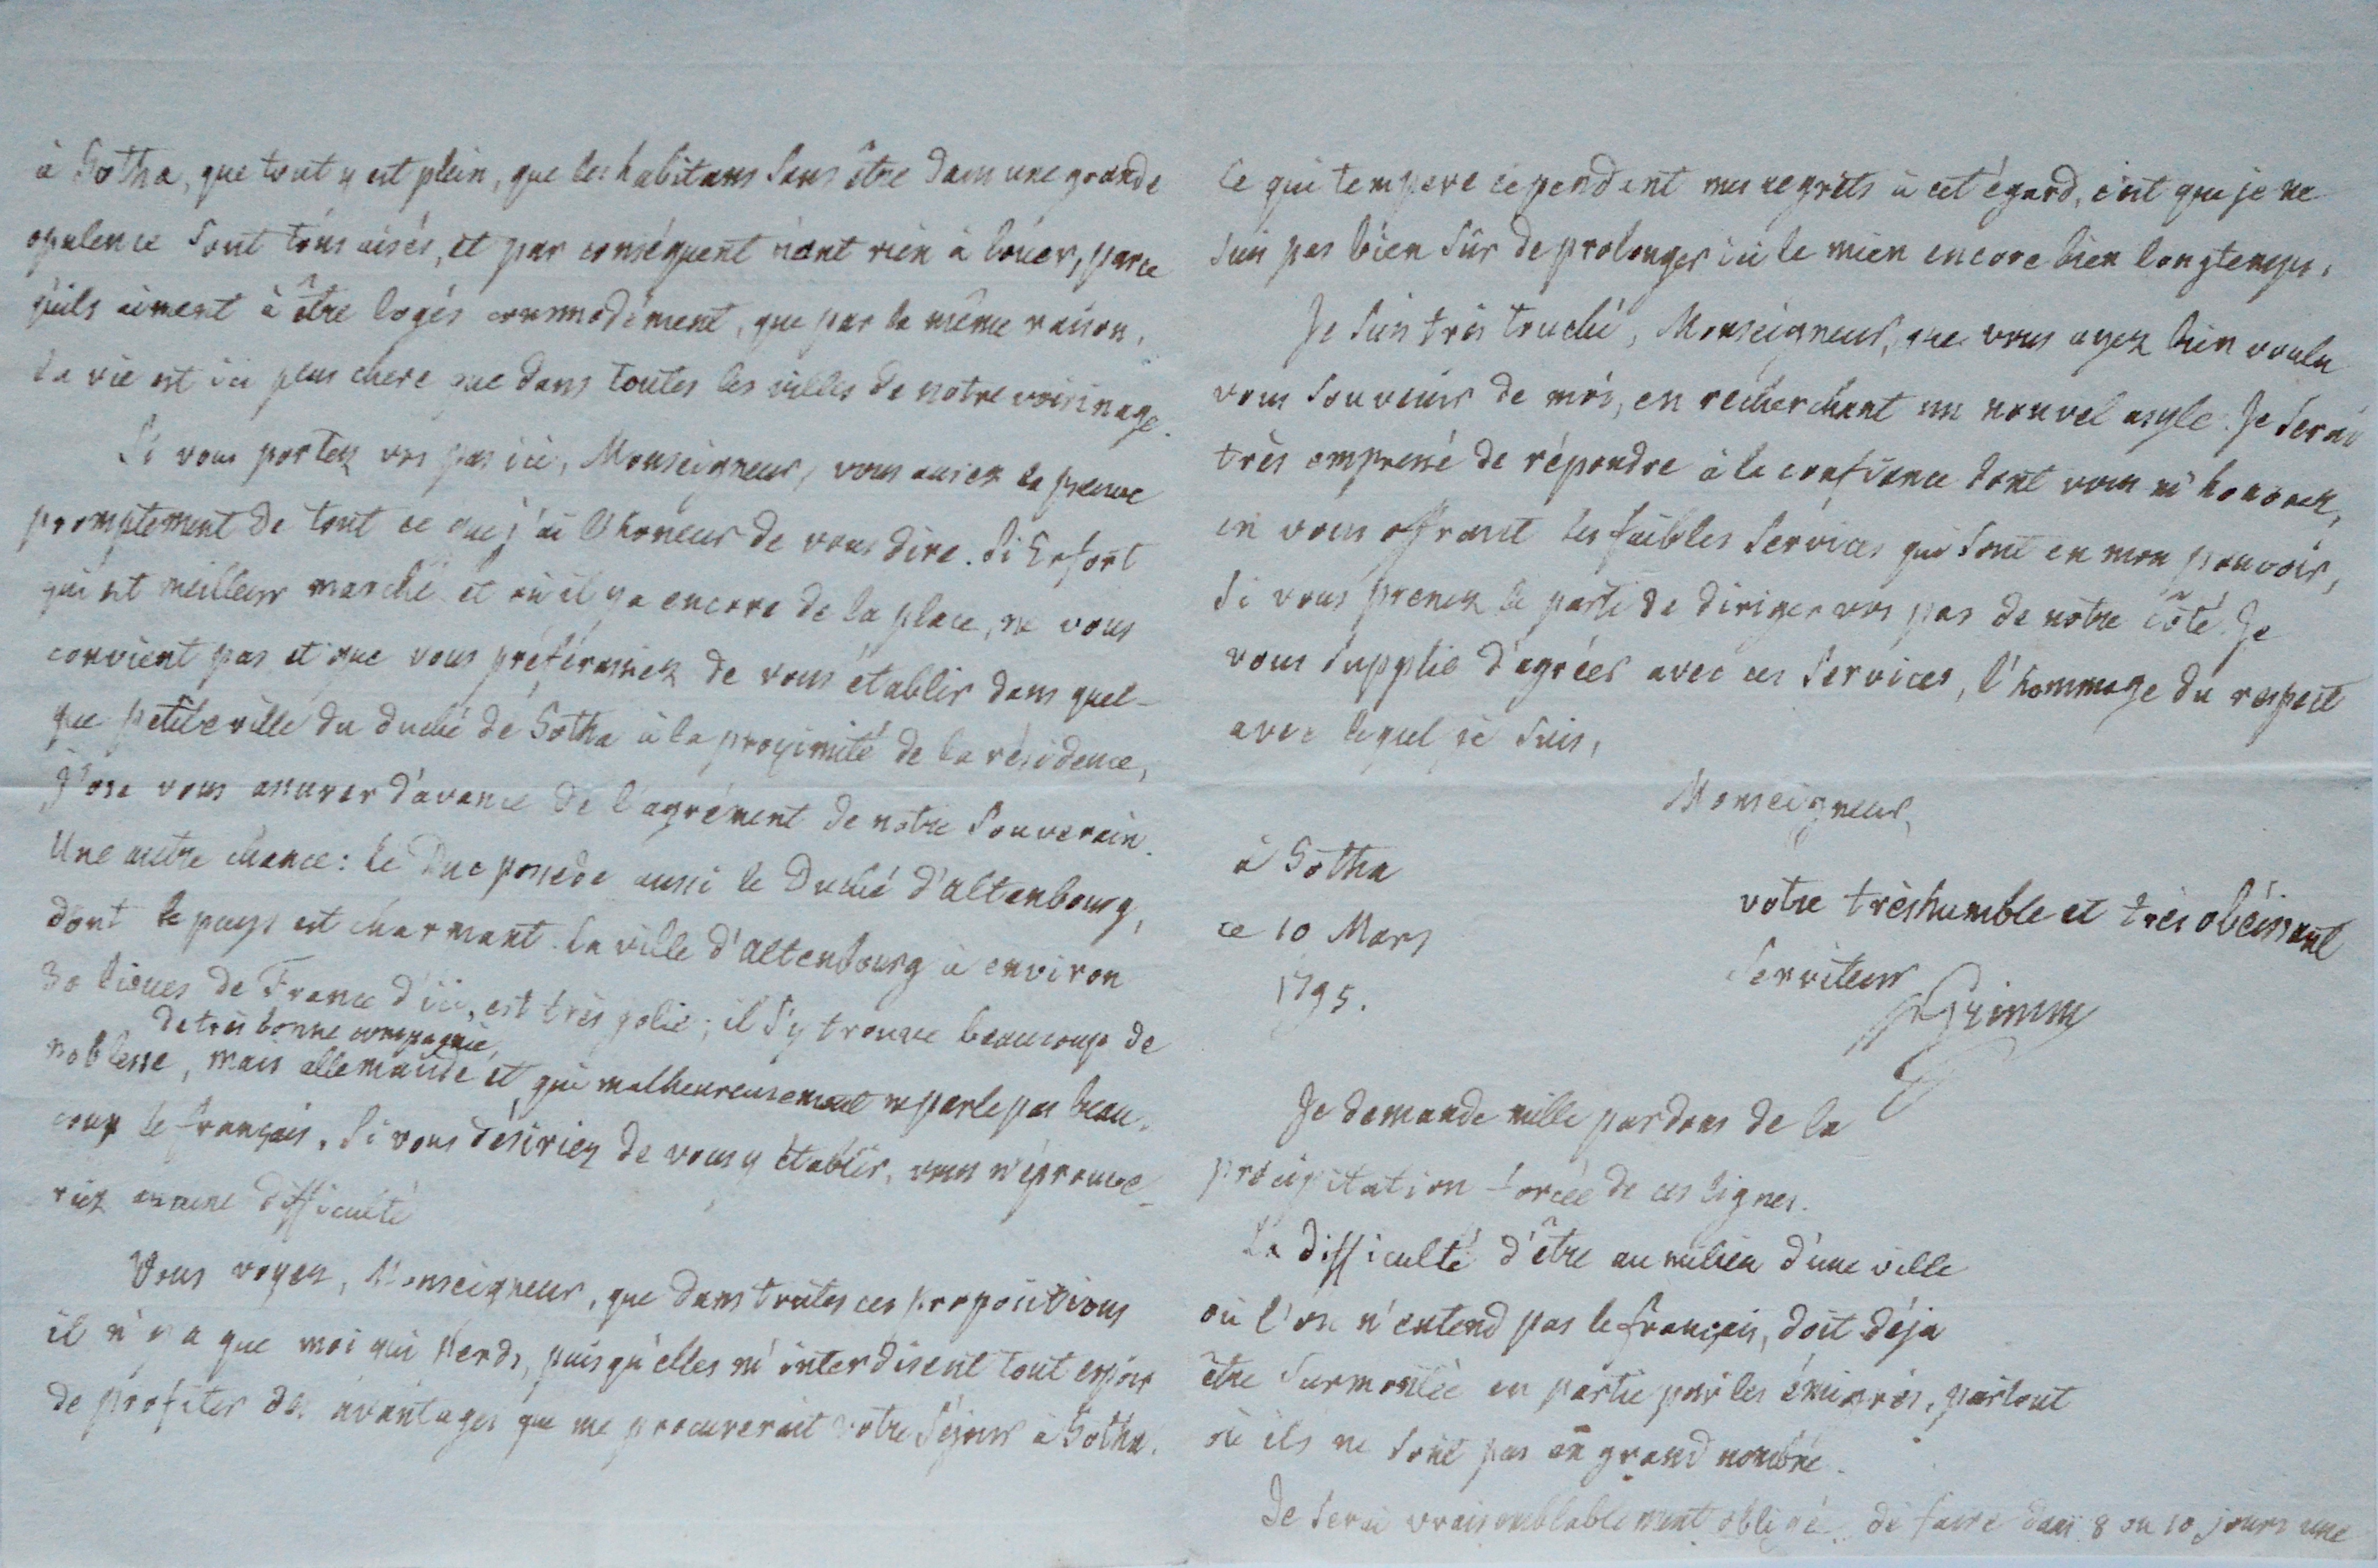 à Gotha, que tout y est plein, que les habitans sans être dans une grande
opulence sont tous aisés, et par conséquent n'ont rien à louer, parce
qu'ils aiment à être logés commodément, que par la même raison,
la vie est ici plus chere que dans toutes les villes de notre voisinage.
Si vous portez vos pas ici, Monseigneur, vous aurez la preuve
promptement de tout ce que j'ai l'honneur de vous dire. Si Erfort
qui est meilleur marché et où il y a encore de la place, ne vous
convient pas et que vous préférassiez de vous établir dans quel-
que petite ville du duché de Gotha à la proximité de la résidence,
j'ose vous assurer d'avance de l'agrément de notre Souverain.
Une autre chance: le Duc possede aussi le Duché d'Altenbourg,
dont le pays est charmant. La ville d'Altenbourg à environ
30 lieues de France d'ici, est très jolie; il s'y trouve beaucoup de
de très bonne compagnie,
noblesse, mais allemande et qui malheureusement ne parle pas beau-
coup le français. Si vous désiriez de vous y établir, vous n'éprouve-
riez aucune difficulté
Vous voyez, Monseigneur, que dans toutes ces propositions
il n'y a que moi qui perds, puisqu'elles m'interdisent tout espoir
de profiter des avantages que me procurerait votre séjour à Gotha.
Ce qui tempere cependant mes regrets à cet égard, c'est que je ne
suis pas bien sûr de prolonger ici le mien encore bien longtemps.
Je suis très touché, Monseigneur, que vous ayez bien voulu
vous souvenir de moi, en recherchant un nouvel asyle. Je serai
très empressé de répondre à la confiance dont vous m'honorez,
en vous offrant les faibles services qui sont en mon pouvoir,
si vous prenez le parti de diriger vos pas de notre côté. Je
vous supplie d'agréer avec ces services, l'hommage du respect
avec lequel je suis,
Monseigneur,
à Gotha
ce 10 Mars
1795.
votre très humble et très obéissant
Serviteur
Grimm
Je demande mille pardons de la
précipitation forcée de ces lignes.
La difficulté d'être au milieu d'une ville
où l'on n'entend pas le français, doit déja
être surmontée en partie par les émigrés, partout
où ils ne sont pas en grand nombre.
Je serai vraisemblablement obligé de faire dans 8 ou 10 jours une